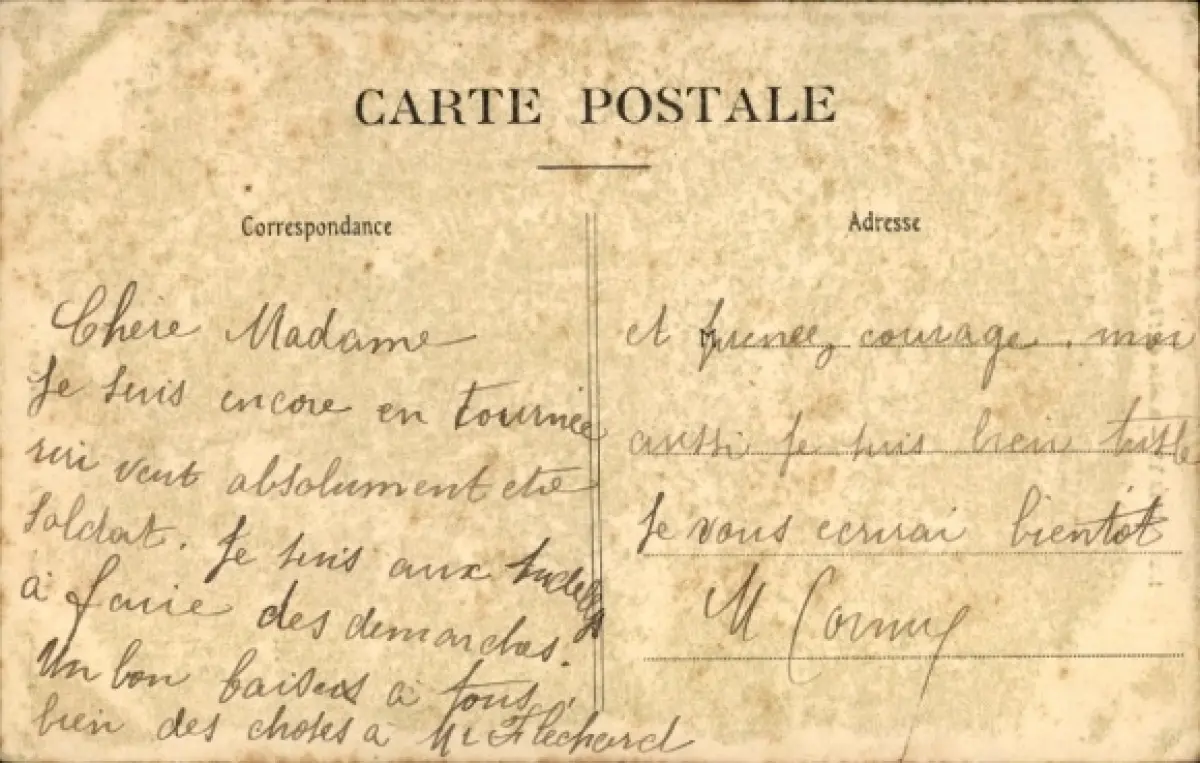 CARTE POSTALE
Correspondance
Chère Madame
Je suis encore en tournée
veut absolument etre
soldat. Je suis aux
à faire des demarches.
Un bon baisers à tous,
bien des choses à Mr Flechard
Adresse
et prenez courage. moi
aussi je suis bien triste
Je vous ecrirai bientot
M Cornu